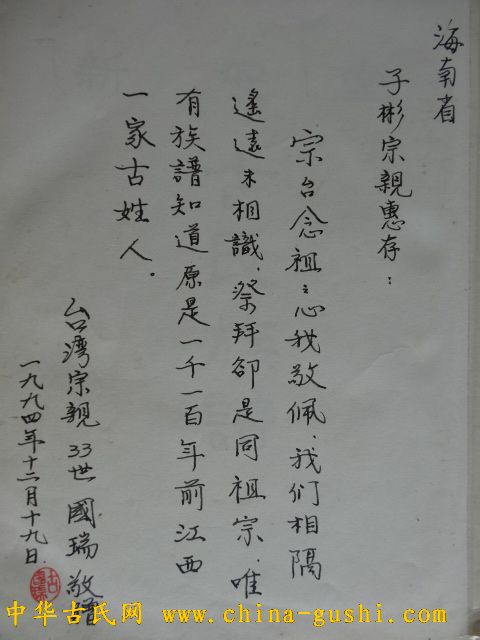 海南省
子彬宗親惠存：
宗台念祖之心我敬佩、我们相隔
遙遠未相識、祭拜卻是同祖宗、唯
有族譜知道原是一千一百年前江西
一家古姓人。
台湾宗親33世國瑞敬贈
一九九四年十二月十九日
中华古氏网 www.china-gushi.com